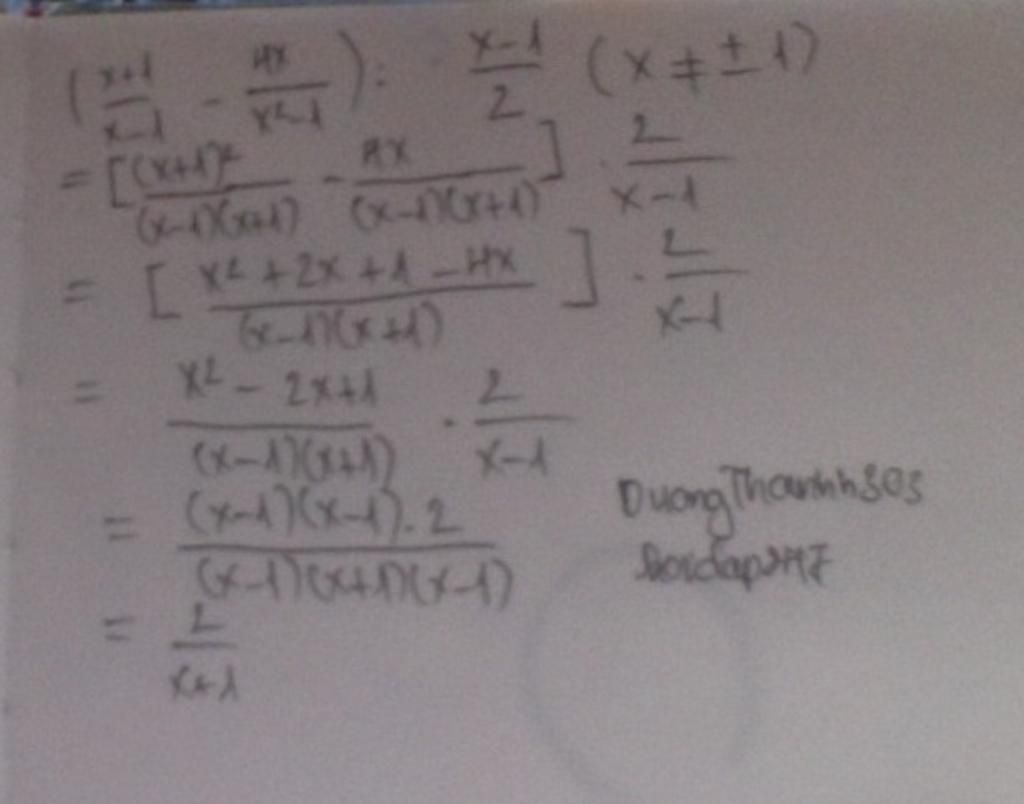 ( x+1 / x-1 - 4x / x²-1 ) : x-1 / 2 (x ≠ ± 1)
= [ (x+1)² / (x-1)(x+1) - 4x / (x-1)(x+1) ] . 2 / x-1
= [ x² + 2x + 1 - 4x / (x-1)(x+1) ] . 2 / x-1
= x² - 2x+1 / (x-1)(x+1) . 2 / x-1
= (x-1)(x-1).2 / (x-1)(x+1)(x-1)
= 2 / x+1
DuongThanhh303
hoidap247